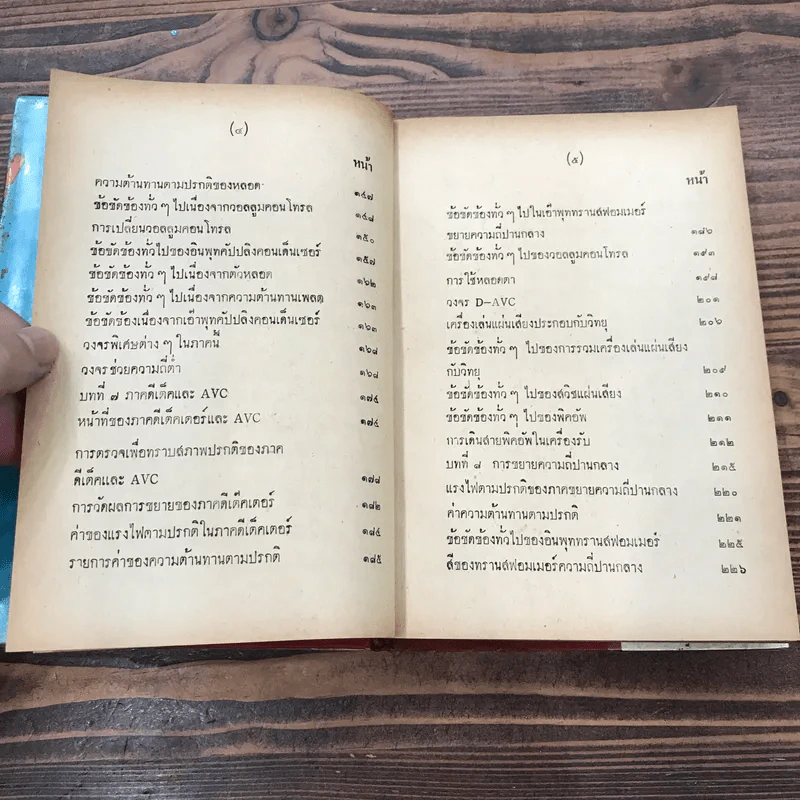 (๔)
หน้า
ความต้านทานตามปรกติของหลอด ๑๔๗
ข้อขัดข้องทั่ว ๆ ไปเนื่องจากวอลลูมคอนโทรล ๑๔๘
การเปลี่ยนวอลลูมคอนโทรล ๑๕๐
ข้อขัดข้องทั่วไปของอินพุทคัปปลิงคอนเด็นเซอร์ ๑๕๗
ข้อขัดข้องทั่ว ๆ ไปเนื่องจากตัวหลอด ๑๖๒
ข้อขัดข้องทั่ว ๆ ไปเนื่องจากความต้านทานเพลต ๑๖๓
ข้อขัดข้องเนื่องจากเอ๊าพุทคัปปลิงคอนเด็นเซอร์ ๑๖๓
วงจรพิเศษต่าง ๆ ในภาคนี้ ๑๖๘
วงจรช่วยความถี่ต่ำ ๑๖๘
บทที่ ๗ ภาคดีเต็คและ AVC ๑๗๔
หน้าที่ของภาคดีเต็คเตอร์และ AVC ๑๗๔
การตรวจเพื่อทราบสภาพปรกติของภาค
ดีเต็คและ AVC ๑๗๘
การวัดผลการขยายของภาคดีเต๊คเตอร์ ๑๘๒
ค่าของแรงไฟตามปรกติในภาคดีเต็คเตอร์ ๑๘๔
รายการค่าของความต้านทานตามปรกติ ๑๘๕
(๕)
หน้า
ข้อขัดข้องทั่ว ๆ ไปในเอ๊าพุททรานส์ฟอมเมอร์
ขยายความถี่ปานกลาง ๑๘๖
ข้อขัดข้องทั่ว ๆ ไปของวอลลูมคอนโทรล ๑๙๓
การใช้หลอดตา ๑๙๘
วงจร D-AVC ๒๐๑
เครื่องเล่นแผ่นเสียงประกอบกับวิทยุ ๒๐๖
ข้อขัดข้องทั่ว ๆ ไปของการรวมเครื่องเล่นแผ่นเสียง
กับวิทยุ ๒๐๙
ข้อขัดข้องทั่ว ๆ ไปของสวิชแผ่นเสียง ๒๑๐
ข้อขัดข้องทั่ว ๆ ไปของพิคอัพ ๒๑๑
การเดินสายพิคอัพในเครื่องรับ ๒๑๒
บทที่ ๘ การขยายความถี่ปานกลาง ๒๑๕
แรงไฟตามปรกติของภาคขยายความถี่ปานกลาง ๒๒๐
ค่าความต้านทานตามปรกติ ๒๒๑
ข้อขัดข้องทั่วไปของอินพุททรานส์ฟอมเมอร์ ๒๒๕
สีของทรานส์ฟอมเมอร์ความถี่ปานกลาง ๒๒๖